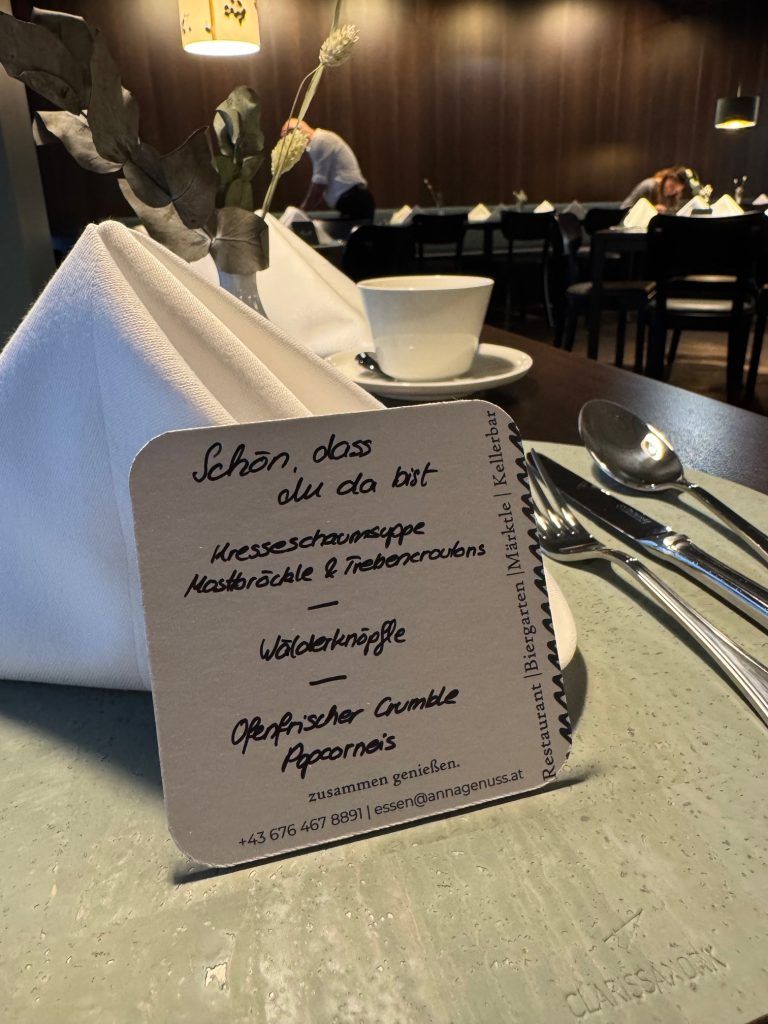 Schön, dass
du da bist
Kresseschaumsuppe
Mostbröckle & Trebencroutons
—
Wälderknöpfle
—
Ofenfrischer Crumble
Popcorneis
zusammen genießen.
+43 676 467 8891 | essen@annagenuss.at
Restaurant | Biergarten | Märktle | Kellerbar